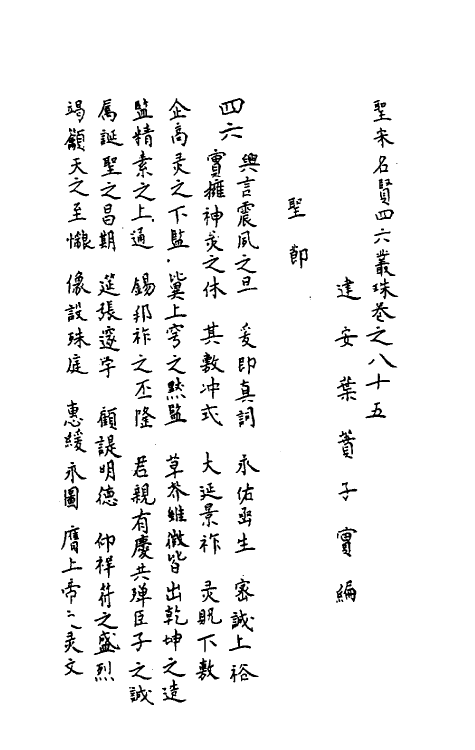 聖宋名賢四六叢珠卷之八十五
建安葉蕡子實編
聖節
四六 興言震夙之旦 爰即真詞 永佑函生 寅誠上裕
實擁神灵之休 其敷冲式 大延景祚 灵貺下敷
企高灵之下監 冀上穹之黙監 草芥維微皆出乾坤之造
監精素之上通 錫邦祚之丕隆 君親有慶共殫臣子之誠
属誕聖之昌期 筵張邃宇 顧諟明德 仰稈符之盛烈
竭籲天之至懇 像設珠庭 惠綏永圖 膺上帝之灵文